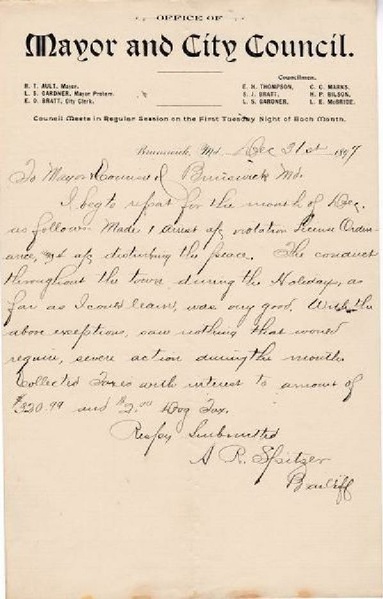 OFFICE OF
Mayor and City Council.
Councilmen.
R. T. AULT, Mayor.
L. S. GARDNER, Mayor Protem.
E. O. BRATT, City Clerk.
E. H. THOMPSON, C. C. MARKS.
S. J. BRATT. H. P. BILSON,
L. S. GARDNER, L. E. McBRIDE.
Council Meets in Regular Session on the First Tuesday Night of Each Month.
Brunswick, Md. Dec 31st 1897
To Mayor & Council Brunswick Md.
I beg to report for the month of Dec.
as follows Made 1 arrest a/c violation License Ordin-
ance, a/c disturbing the peace. The conduct
throughout the town during the Holidays, as
far as I could learn, was very good. With the
above exceptions, saw nothing that would
require, severe action during the month.
Collected Taxes with interest to amount of
$320.99 and $2.00 Dog Tax.
Respy Submitted
A R. Spitzer
Bailiff